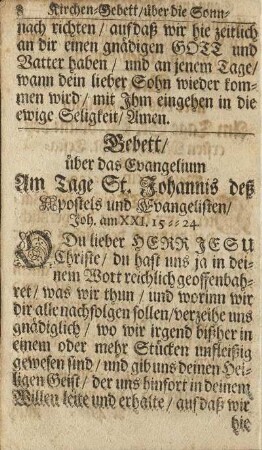 8 Kirchen-Gebett/über die Sonn-
nach richten/auffdaß wir hie zeitlich
an dir einen gnädigen GOTT und
Vatter haben/ und an jenem Tage/
wann dein lieber Sohn wieder kom-
men wird/ mit Ihm eingehen in die
ewige Seligkeit/ Amen.
Gebett/
über das Evangelium
Am Tage St. Johannis deß
Apostels und Evangelisten/
Joh. am XXI. 15 = = 24.
O Du lieber HERR JESU
Christe/ du hast uns ja in dei-
nem Wort reichlich geoffenbah-
ret/ was wir thun/ und worinn wir
dir alle nachfolgen sollen/verzeihe uns
gnädiglich/ wo wir irgend bißher in
einem oder mehr Stücken unfleißig
gewesen sind/ und gib uns deinen Hei-
ligen Geist/ der uns hinfort in deinem
Willen leite und erhalte/ auffdaß wir
hie